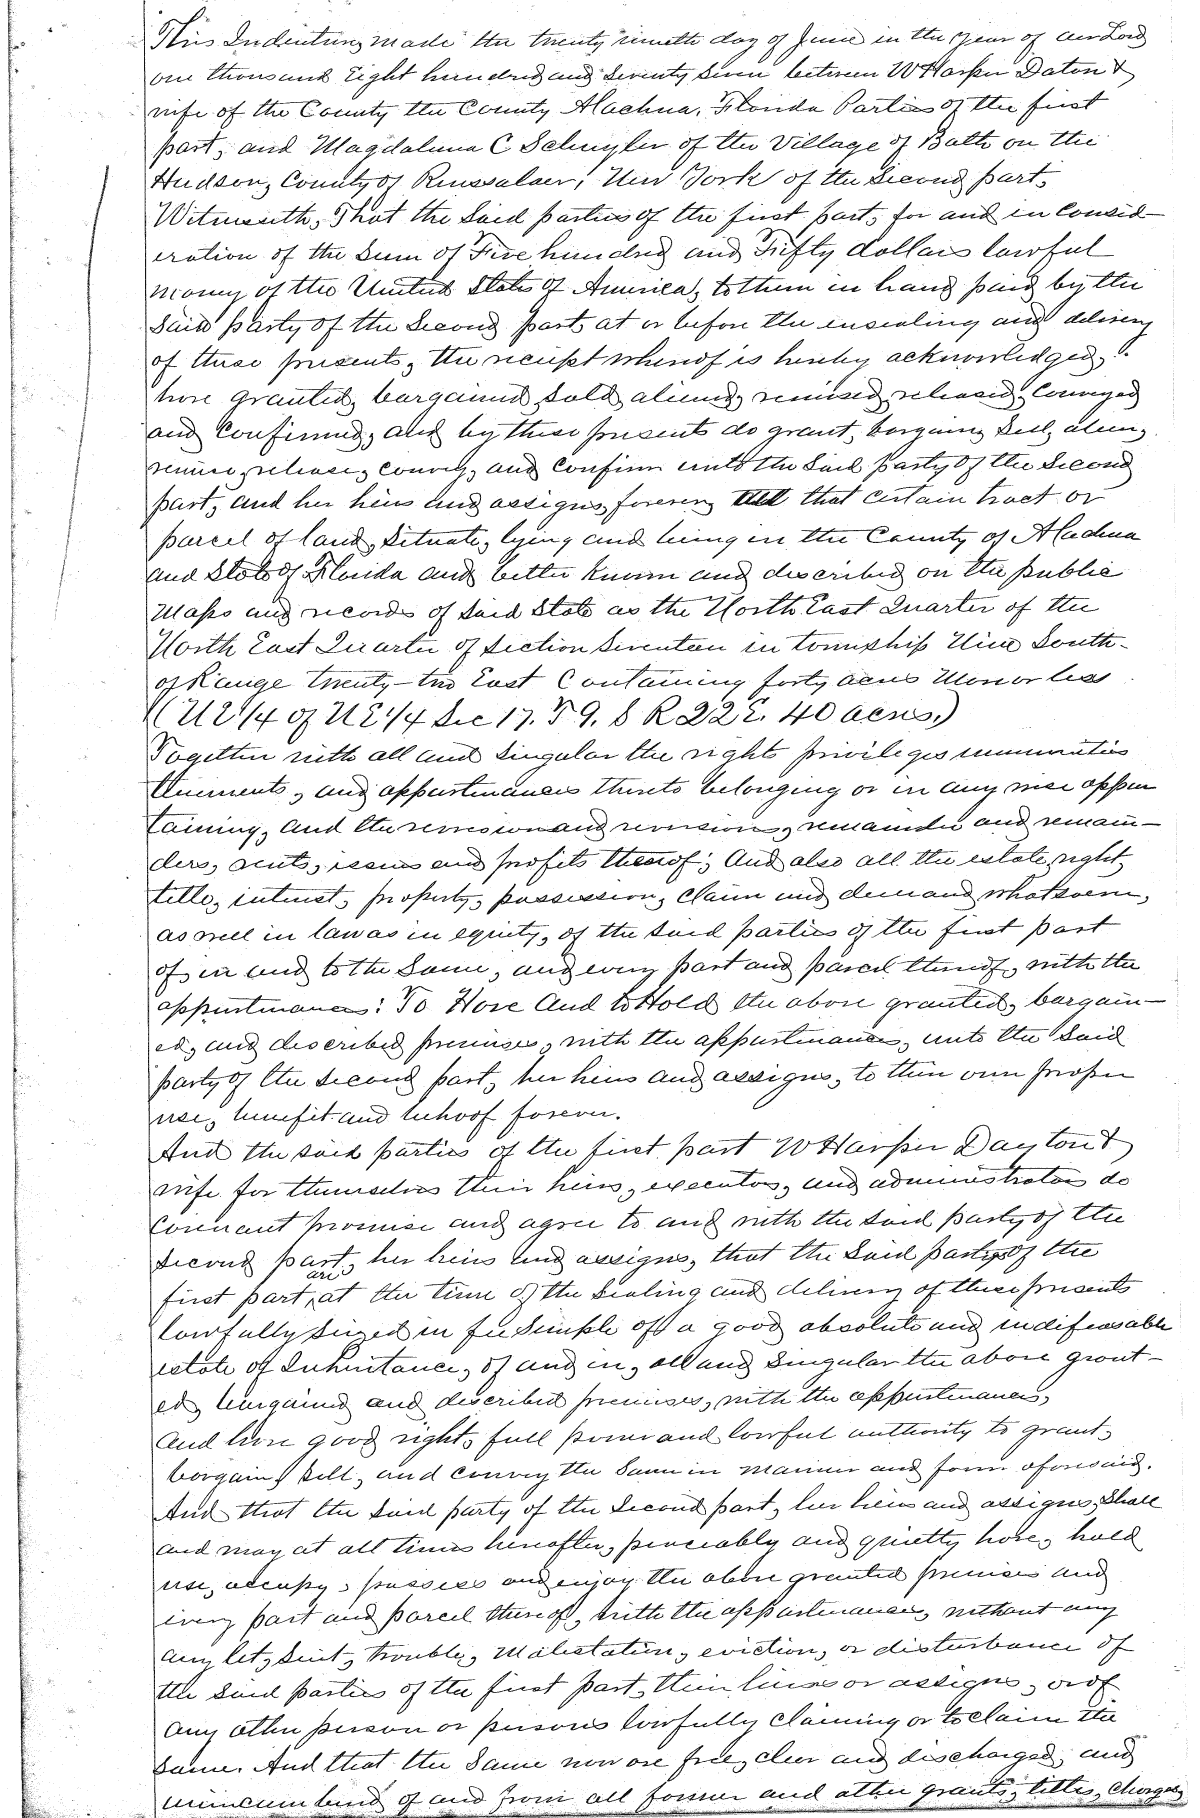 This Indenture, made the twenty ninth day of June in the year of our Lord
one thousand Eight hundred and Seventy Seven between W Harper Daton &
wife of the County the County Alachua, Florida Parties of the first
part, and Magdalena C Schuyler of the Village of Bath on the
Hudson, County of Renssalaer, New York of the Second part,
Witnesseth, That the Said parties of the first part, for and in Consid-
eration of the Sum of Five hundred and Fifty dollars lawful
money of the United States of America, to them in hand paid by the
Said party of the Second part at or before the ensealing and delivery
of these presents, the receipt whereof is hereby acknowledged,
have granted, bargained, Sold, aliened, remised, released, Conveyed
and Confirmed, and by these presents do grant, bargain, Sell, alien,
remise, release, convey, and Confirm unto the Said party of the Second
part, and her heirs and assigns, forever, All that certain tract or
parcel of land, Situate, lying and being in the County of Alachua
and State of Florida and better known and described on the public
Maps and records of Said State as the North East Quarter of the
North East Quarter of Section Seventeen in township Nine South-
of Range twenty-two East Containing forty acres More or less
(N E 1/4 of N E 1/4 Sec 17. T 9. S R 22 E. 40 acres.)
Together with all and Singular the rights privileges immunities
tenements, and appurtenances thereto belonging or in any wise apper
taining, and the reversion and reversions, remainder and remain-
ders, rents, issues and profits thereof; And also all the estate, right,
title, interest, property, possession, Claim and demand whatsoever,
as well in law as in equity, of the Said parties of the first part
of, in and to the Same, and every part and parcel thereof, with the
appurtenances: To Have And to Hold the above granted, bargain-
ed, and described premises, with the appurtenances, unto the Said
party of the Second part, her heirs and assigns, to their own proper
use, benefit and behoof forever.
And the Said parties of the first part W Harper Dayton &
wife for themselves their heirs, executors, and administrators do
Covenant promise and agree to and with the Said party of the
Second part, her heirs and assigns, that the Said partys of the
first part, are at the time of the Sealing and delivery of these presents
lawfully Seized in fee Simple of a good absolute and indefeasable
estate of Inheritance, of and in, all and Singular the above grant-
ed, bargained and described premises, with the appurtenances,
And have good right, full power and lawful authority to grant,
bargain, Sell, and convey the Same in manner and form aforesaid.
And that the Said party of the Second part, her heirs and assigns, Shall
and may at all times hereafter, peaceably and quietly have, hold
use, occupy, possess and enjoy the above granted premises and
every part and parcel thereof, with the appurtenances, without any
any let, Suit, trouble, Molestation, eviction, or disturbance of
the Said parties of the first part, their heirs or assigns, or of
any other person or persons lawfully Claiming or to claim the
Same. And that the Same now are free, clear and discharged, and
unincumbered of and from all former and other grants, titles, Charges